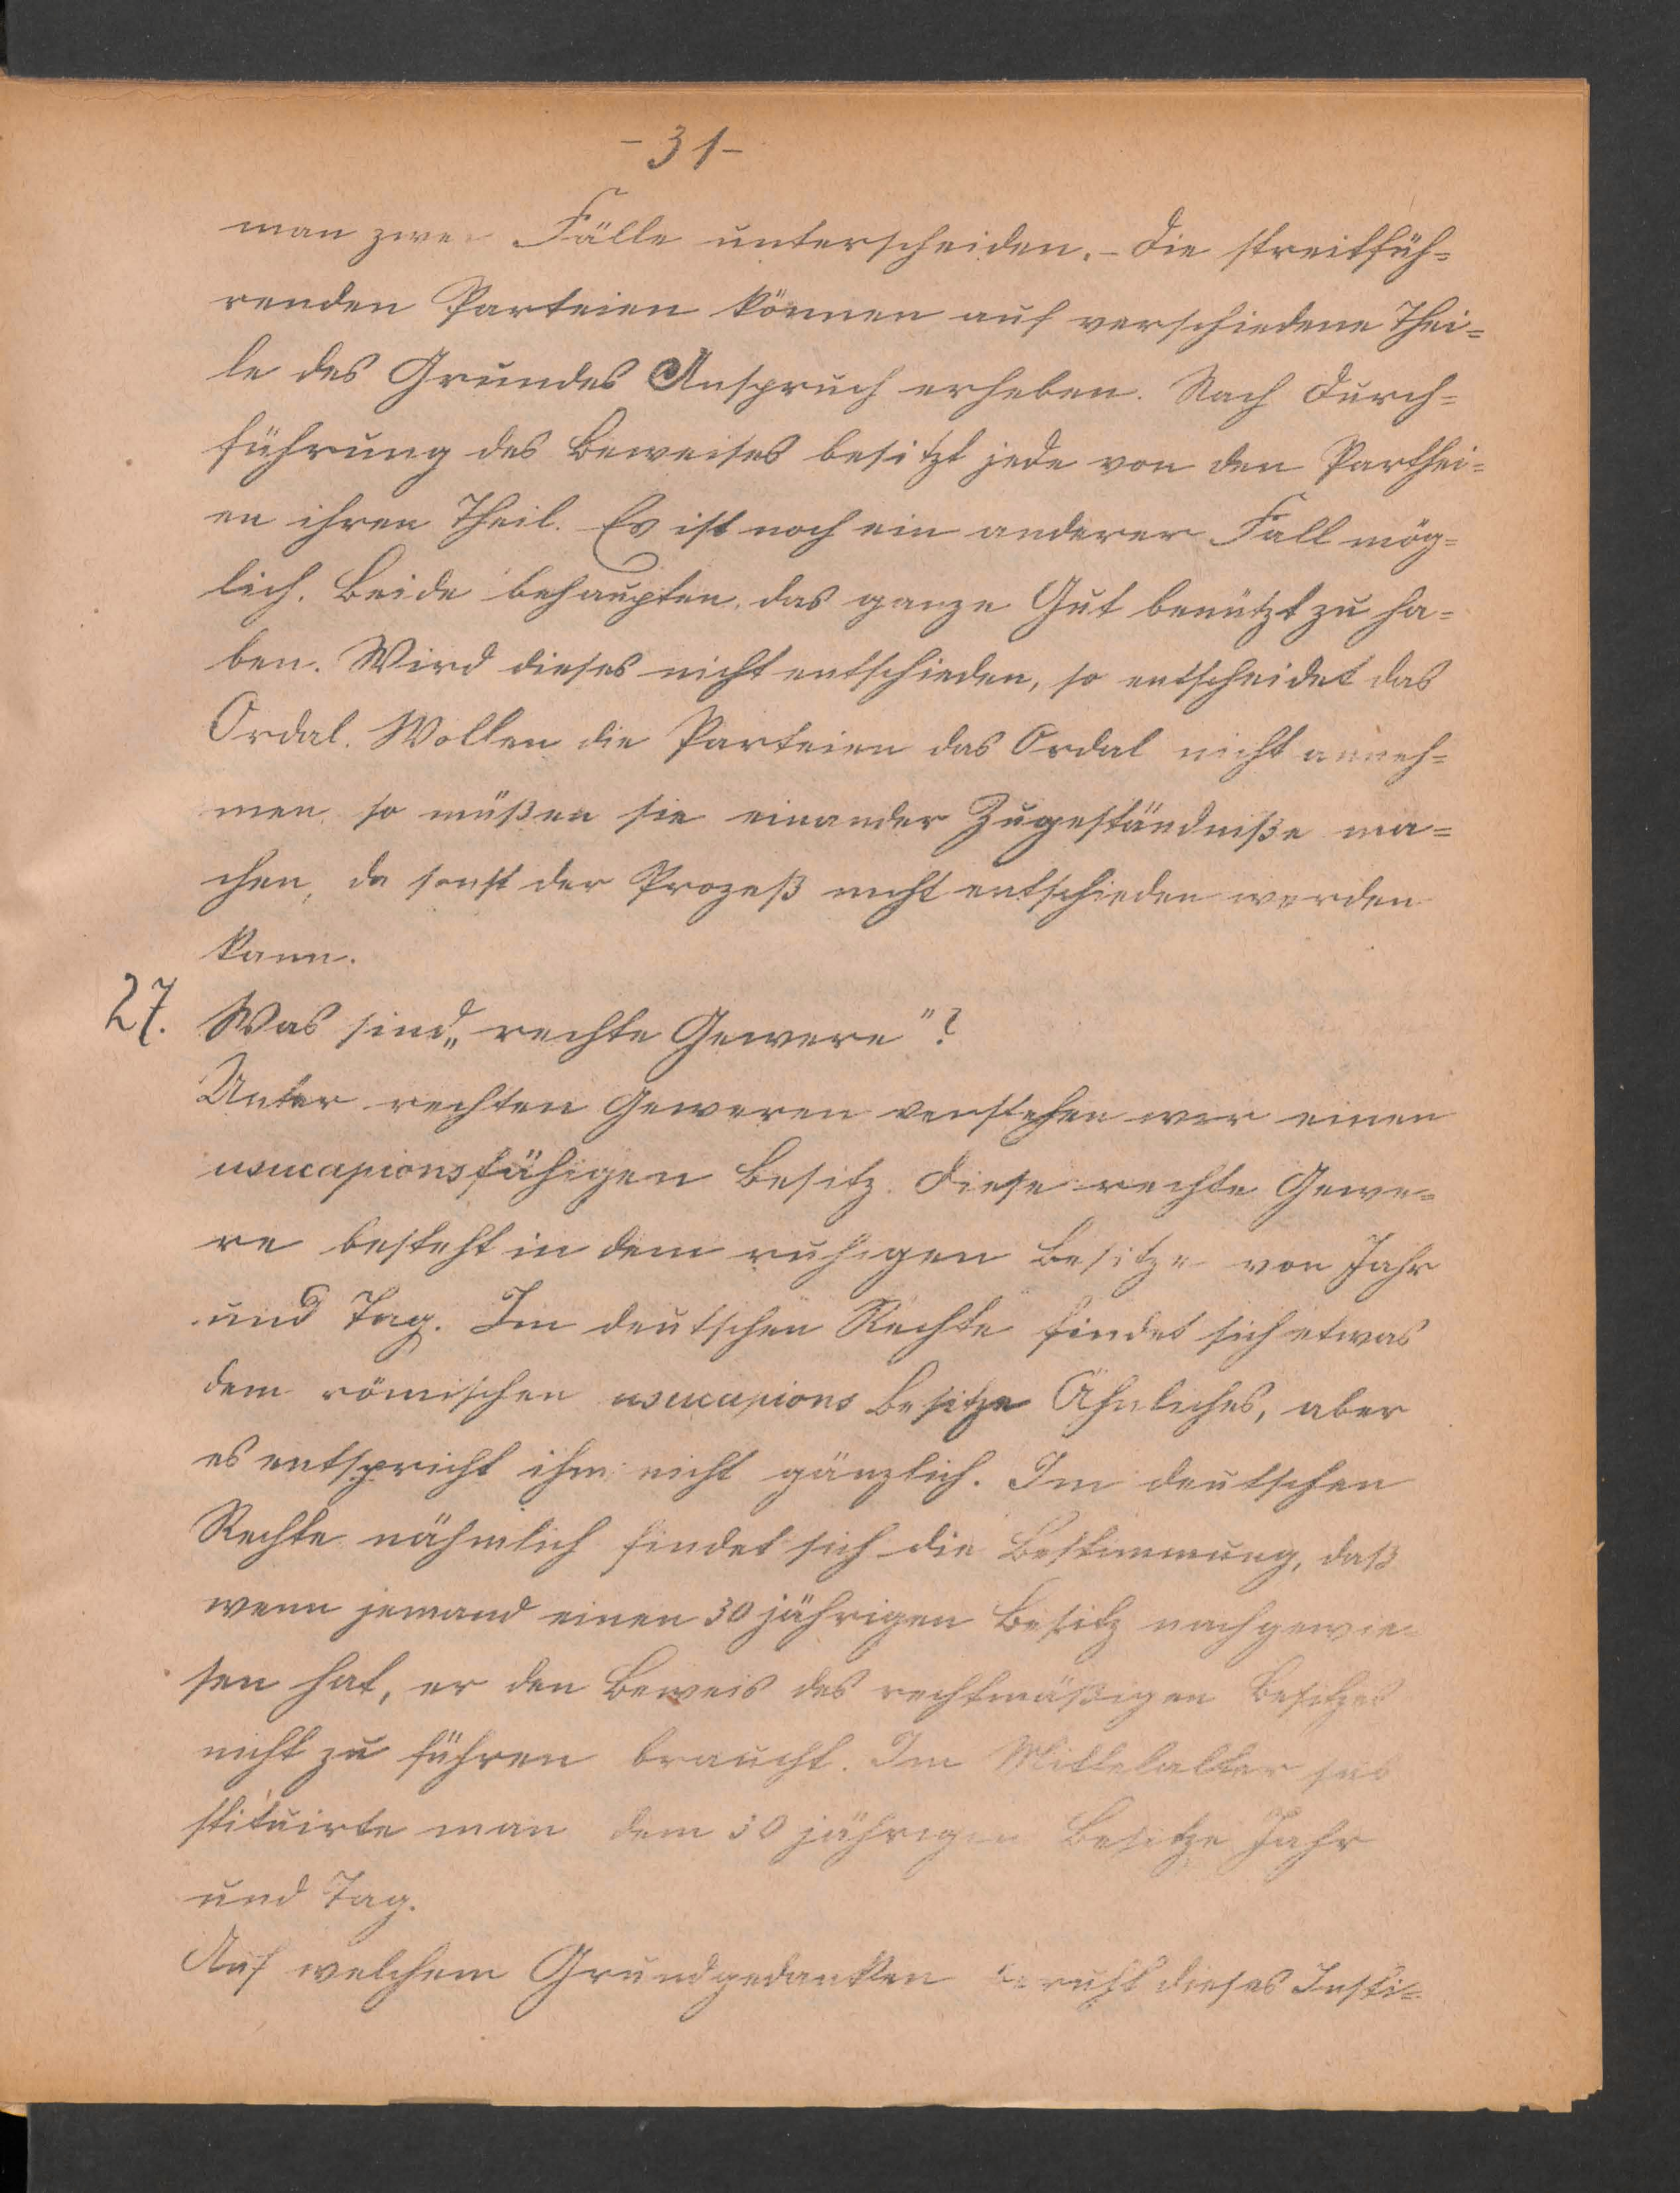 - 31 -
man zwei Fälle unterscheiden. - Die streitfüh=
renden Parteien können auf verschiedene Thei=
le des Grundes Anspruch erheben. Nach Durch=
führung des Beweises besitzt jede von den Parthei=
en ihren Theil. Es ist noch ein anderer Fall mög=
lich. Beide behaupten, das ganze Gut benützt zu ha=
ben. Wird dieses nicht entschieden, so entscheidet das
Ordal. Wollen die Parteien das Ordal nicht anneh=
men so müßen sie einander Zugeständniße ma=
chen, da sonst der Prozeß nicht entschieden werden
kann.
27. Was sind „rechte Gewere"?
Unter rechten Geweren verstehen wir einen
usucapionsfähigen Besitz. Diese rechte Gewe=
re besteht in dem ruhigen Besitze von Jahr
und Tag. Im deutschen Rechte findet sich etwas
dem römischen usucapions Besitze Ähnliches, aber
es entspricht ihm nicht gänzlich. Im deutschen
Rechte nähmlich findet sich die Bestimmung, daß
wenn jemand einen 30 jährigen Besitz nachgewie=
sen hat, er den Beweis des rechtmäßigen Besitzes
nicht zu führen braucht. Im Mittelalter sub
stituirte man dem 30 jährigen Besitze Jahr
und Tag.
Auf welchem Grundgedanken beruht dieses Insti=